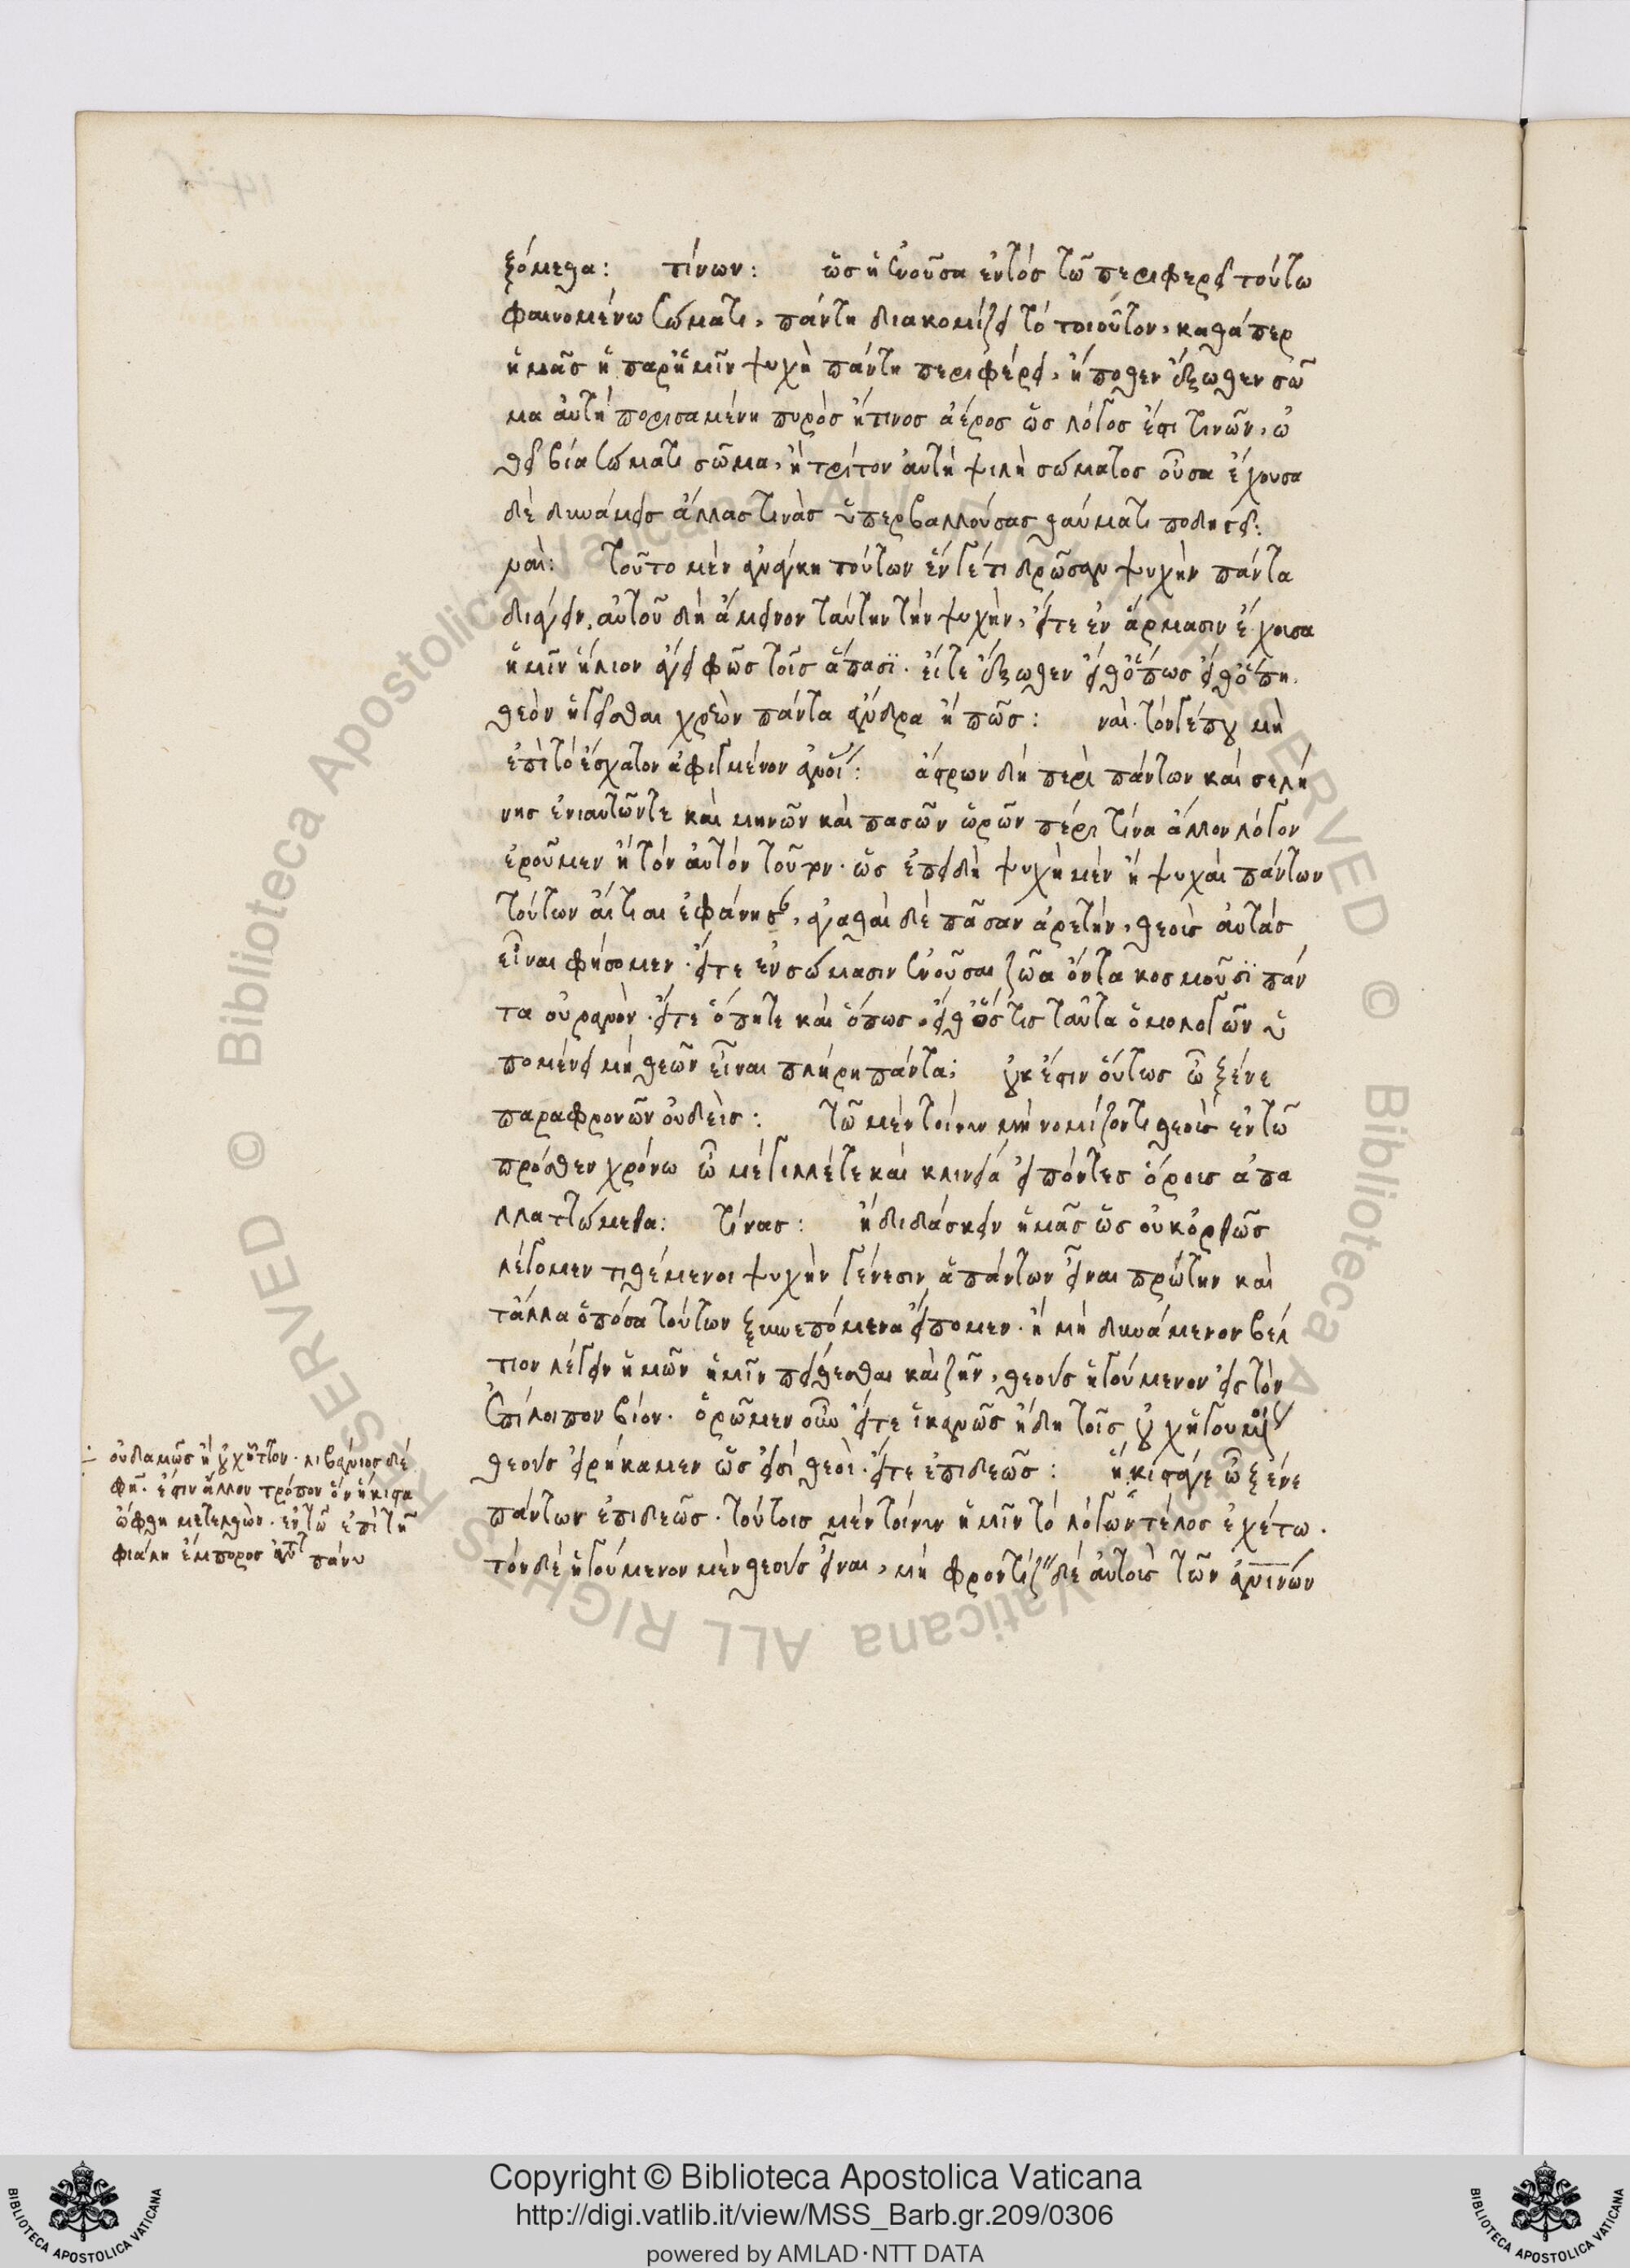 ξόμεθα: τίνων: ὡς ἡ ἐνοῦσα ἐντὸς τῶ περιφερεῖ τούτω
φαινομένω σώματι, πάντη διακομίζει τὸ τοιοῦτον, καθάπερ
ἡμᾶς ἡ παρ' ἡμῖν ψυχὴ πάντη περιφέρει, ἤ ποθεν ἔξωθεν σῶ
μα αὐτῆ πορισαμένη πυρὸς ἤ τινος ἀέρος ὡς λόγος ἐστί τινῶν, ὠ
θεῖ βία σώματι σῶμα, ἢ τρίτον αὐτὴ ψιλὴ σώματος οὖσα ἔχουσα
δὲ δυνάμεις ἄλλας τινὰς ὑπερβαλλούσας θαύματι ποδηγεῖ:
ναί: τοῦτο μὲν ἀνάγκη τούτων ἕν γέ τι δρῶσαν ψυχὴν πάντα
διάγειν. αὐτοῦ δὴ ἄμεινον ταύτην τὴν ψυχὴν, εἴτε ἐν ἅρμασιν ἔχουσα
ἡμῖν ἥλιον ἄγει φῶς τοῖς ἅπασϊ. εἴτε ἔξωθεν εἴθ' ὅπως εἴθ' ὅπη.
θεὸν ἡγεῖσθαι χρεὼν πάντα ἄνδρα ἢ πῶς: ναί. τόν γέ που μὴ
ἐπὶ τὸ ἔσχατον ἀφιγμένον ἀνοίας: ἄστρων δὴ πέρι πάντων καὶ σελή
νης ἐνιαυτῶν τε καὶ μηνῶν καὶ πασῶν ὡρῶν πέρι τίνα ἄλλον λόγον
ἐροῦμεν ἢ τὸν αὐτὸν τοῦτον. ὡς ἐπειδὴ ψυχὴ μὲν ἢ ψυχαὶ πάντων
τούτων αἴτιαι ἐφάνησαν, ἀγαθαὶ δὲ πᾶσαν ἀρετήν, θεοὺς αὐτὰς
εἶναι φήσομεν. εἴτε ἐν σώμασιν ἐνοῦσαι ζῶα ὄντα κοσμοῦσϊ πάν
τα οὐρανόν. εἴτε ὅπητε καὶ ὅπως. εἴθ' ὅστις ταῦτα ὁμολογῶν ὑ
πομένει μὴ θεῶν εἶναι πλήρη πάντα; οὐκ ἔστιν οὕτως ὦ ξένε
παραφρονῶν οὐδείς: τῶ μὲν τοίνυν μὴ νομίζοντι θεοὺς ἐν τῶ
πρόσθεν χρόνω ὦ μέγιλλέ τε καὶ κλεινία εἰπόντες ὅρους ἀπα
λλατώμεθα: τίνας: ἢ διδάσκειν ἡμᾶς ὡς οὐκ ὀρθῶς
λέγομεν τιθέμενοι ψυχὴν γένεσιν ἁπάντων εἶναι πρώτην καὶ
τἄλλα ὁπόσα τούτων ξυνεπόμενα εἴπομεν. ἢ μὴ δυνάμενον βέλ
τιον λέγειν ἡμῶν ἡμῖν πείθεσθαι καὶ ζῆν, θεοὺς ἡγούμενον εἰς τὸν
ἐπίλοιπον βίον. ὁρῶμεν οὖν εἴτε ἱκανῶς ἤδη τοῖς οὐχ ἡγουμένοις
θεοὺς εἰρήκαμεν ὡς εἰσὶ θεοί. εἴτε ἐπιδεῶς: ἥκιστά γε ὦ ξένε
πάντων ἐπιδεῶς. τούτοις μὲν τοίνυν ἡμῖν τὸ λόγων τέλος ἐχέτω.
τὸν δὲ ἡγούμενον μὲν θεοὺς εἶναι, μὴ φροντίζειν δὲ αὐτοὺς τῶν ἀνθρωπίνων
οὐδαμῶς ἢ οὐχ ἧττον. λιβάνιος δέ
φησιν. ἔστιν ἄλλον τρόπον ὃν ἥκιστα
ὤφθη μετελθών. ἐν τῶ ἐπὶ τῆ
φιάλη ἔμπορος πάνυ